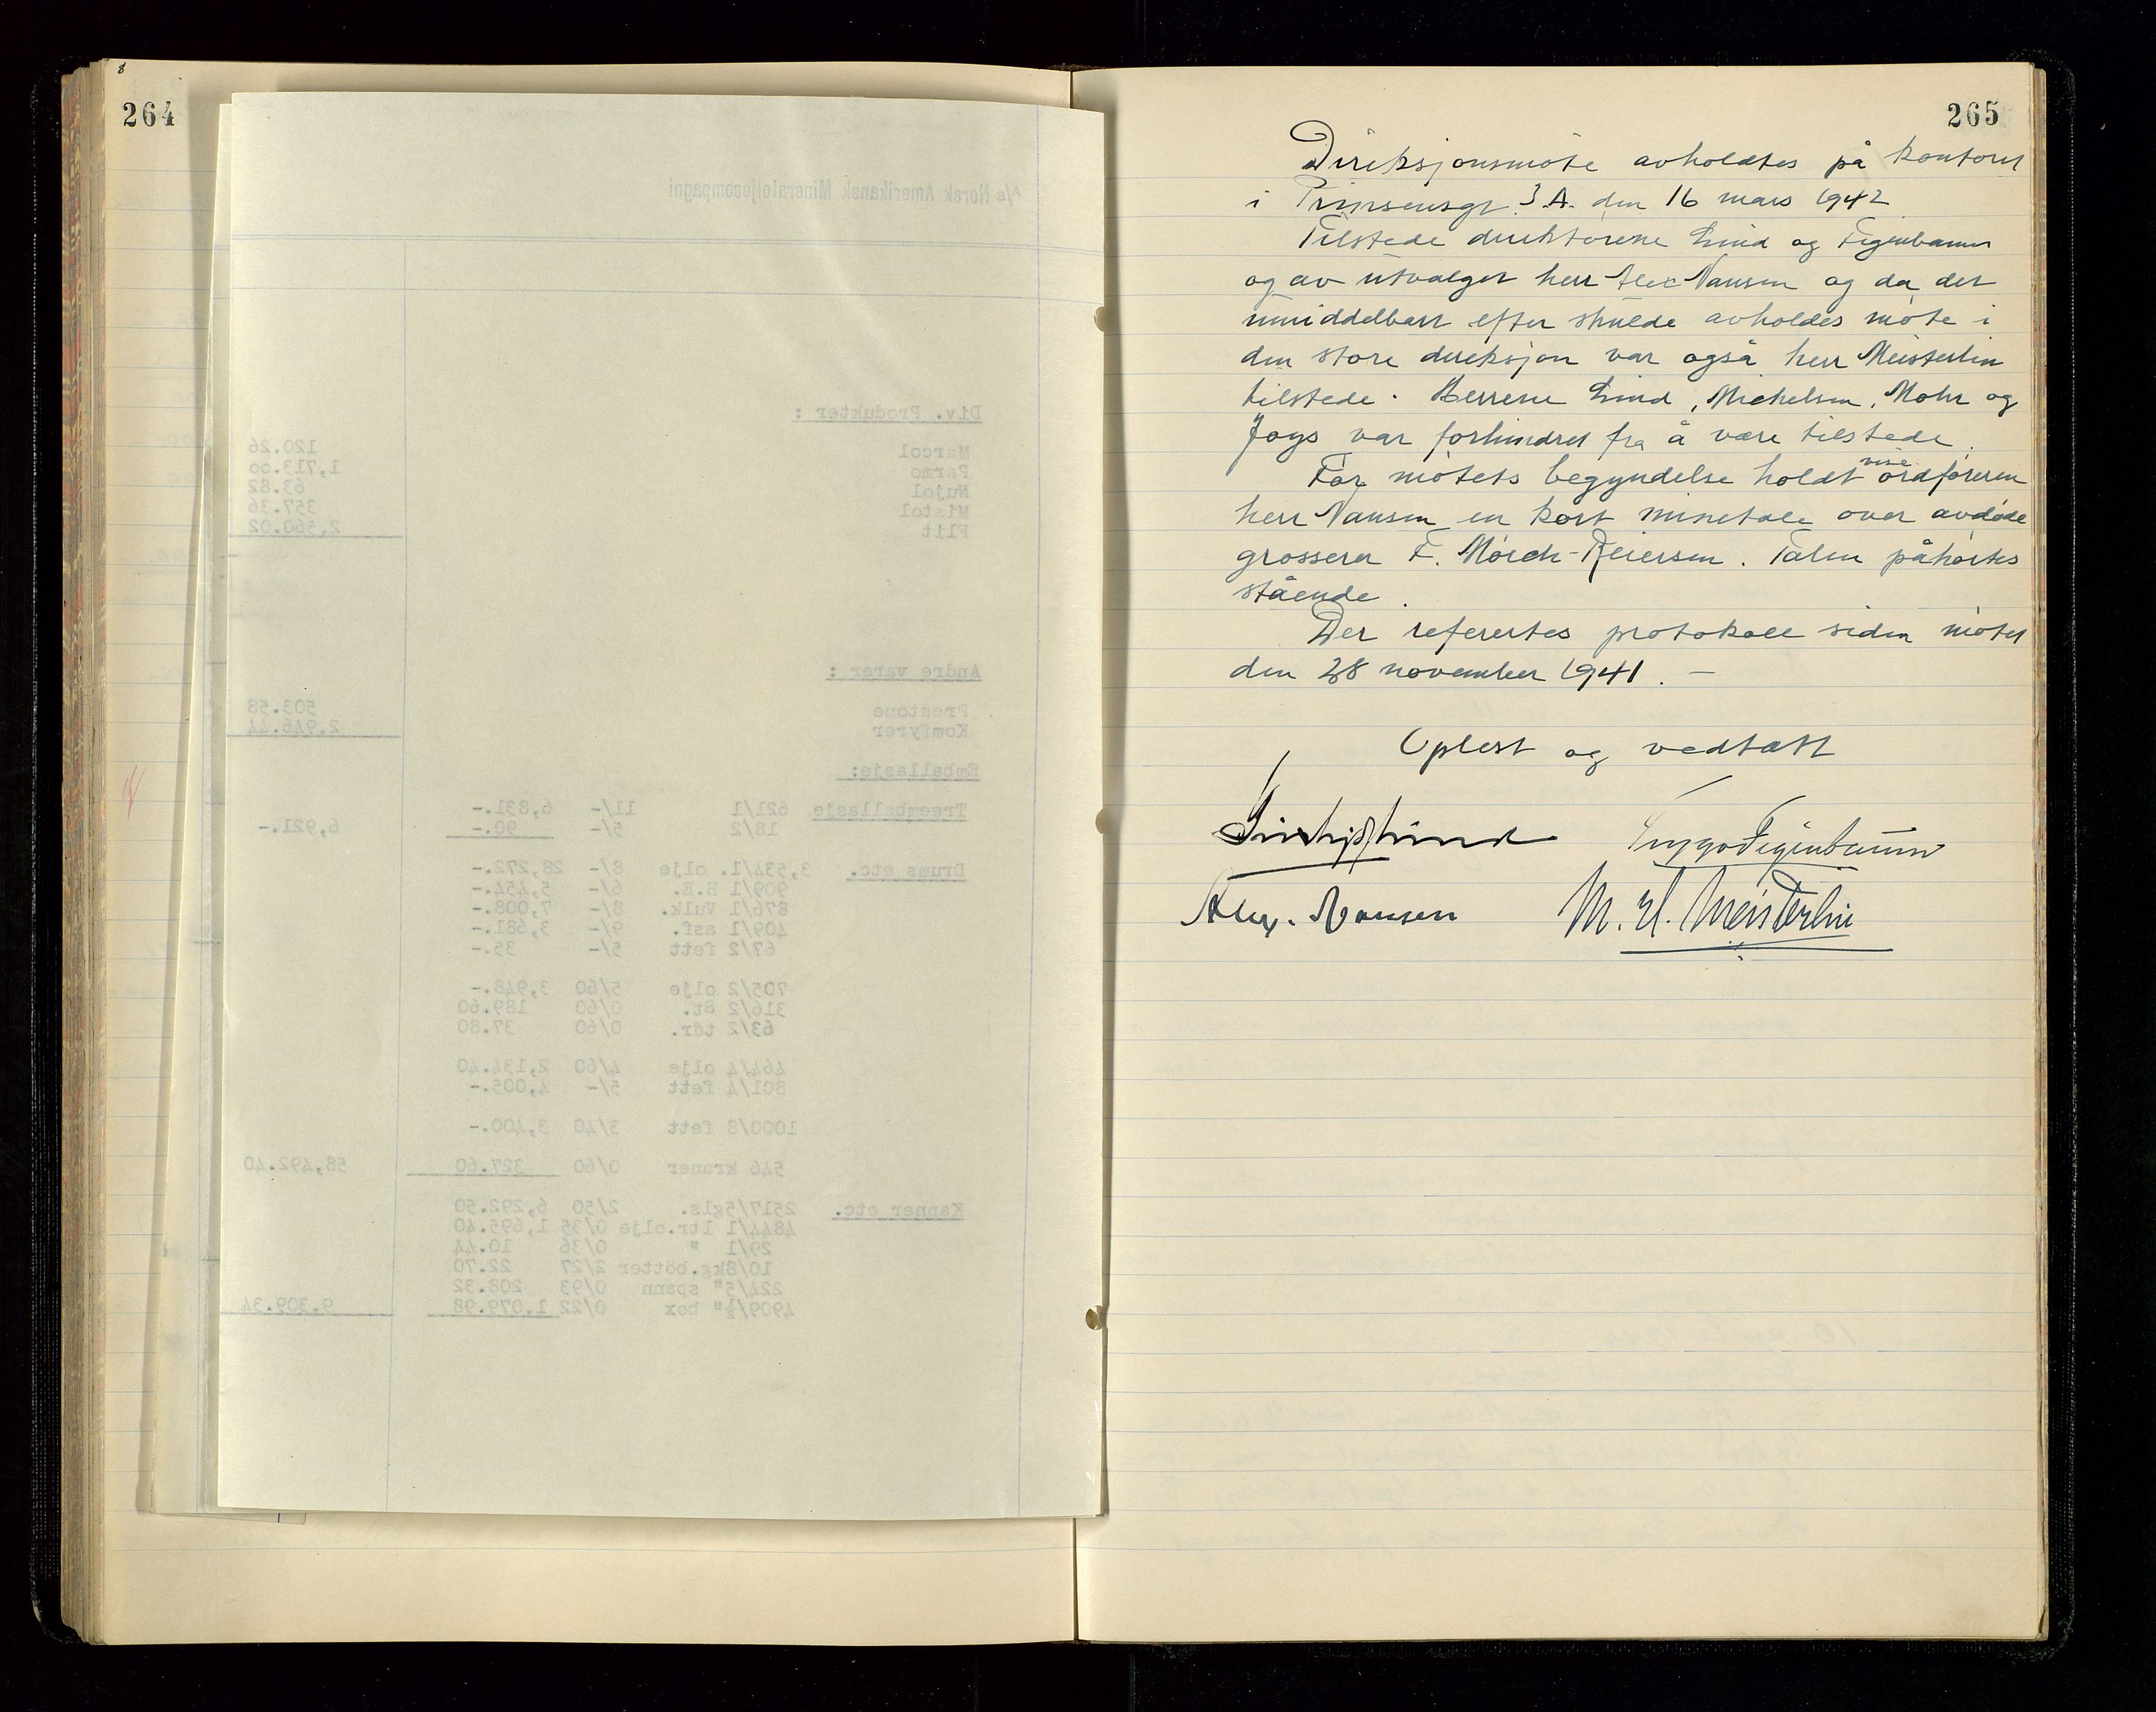 264
A/s Norsk Amerikansk Mineraloljecompagni
Div. Produkter :
Marcol 120.26
Parmo 1,713.00
Nujol 63.82
Mistol 357.36
Flit 2,560.02
Andre varer :
Prestone 503.58
Komfyrer 2,946.44
Emballasje:
Treemballasje 621/1 11/- 6,831.-
18/2 5/- 90.- 6,921.-
Drums etc. 3,534/1. olje 8/- 28,272.-
909/1 H.E. 6/- 5,454.-
876/1 Vulk. 8/- 7,008.-
409/1 asf. 9/- 3,681.-
67/2 fett 5/- 35.-
705/2 olje 5/60 3,948.-
316/2 St. 0/60 189.60
63/2 tör. 0/60 37.80
464/4 olje 4/60 2,134.40
801/4 fett 5/- 4,005.-
1000/8 fett 3/40 3,400.-
546 kraner 0/60 327.60 58,492.40
Kanner etc. 2517/5gls. 2/50 6,292.50
4844/1 ltr.olje 0/35 1,695.40
29/1 " 0/36 10.44
10/8kg.bötter 2/27 22.70
224/5" spann 0/93 208.32
4909/½" box 0/22 1,079.98 9.309.34
265
Direksjonsmöte avholdtes på kontoret
i Prinsensgt 3.A. den 16 mars 1942
Tilstede direktörene Lind og Figenbaum
og av utvalget herr Alex Nansen og da det
umiddelbart efter skulde avholdes möte i
den store direksjon var også herr Meisterlin
tilstede. Herrene Lind, Michelsen, Mohr og
Joys var forhindret fra å være tilstede.
För mötets begyndelse holdt vise ordföreren
herr Nansen en kort minetale over avdöde
grosserer F. Mörch-Reiersen. Talen påhörtes
stående.
Der refereRtes protokoll siden mötet
den 28 november 1941. -
Oplest og vedtatt
Trygve Figenbaum
Alex. Nansen
M. H. Meisterlin